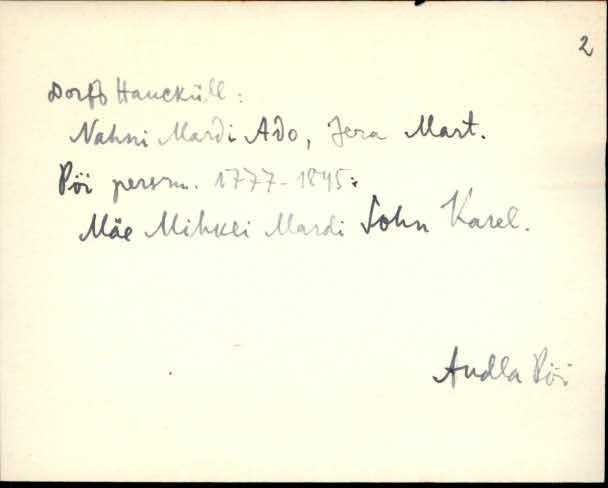 2
Dorff Hauckül̈l:
Nahni Mardi Ado, Jera Mart.
Pöi persrn. 1777-1845:
Mäe Mihklei Mardi Sohn Karel.
Audla Pöi